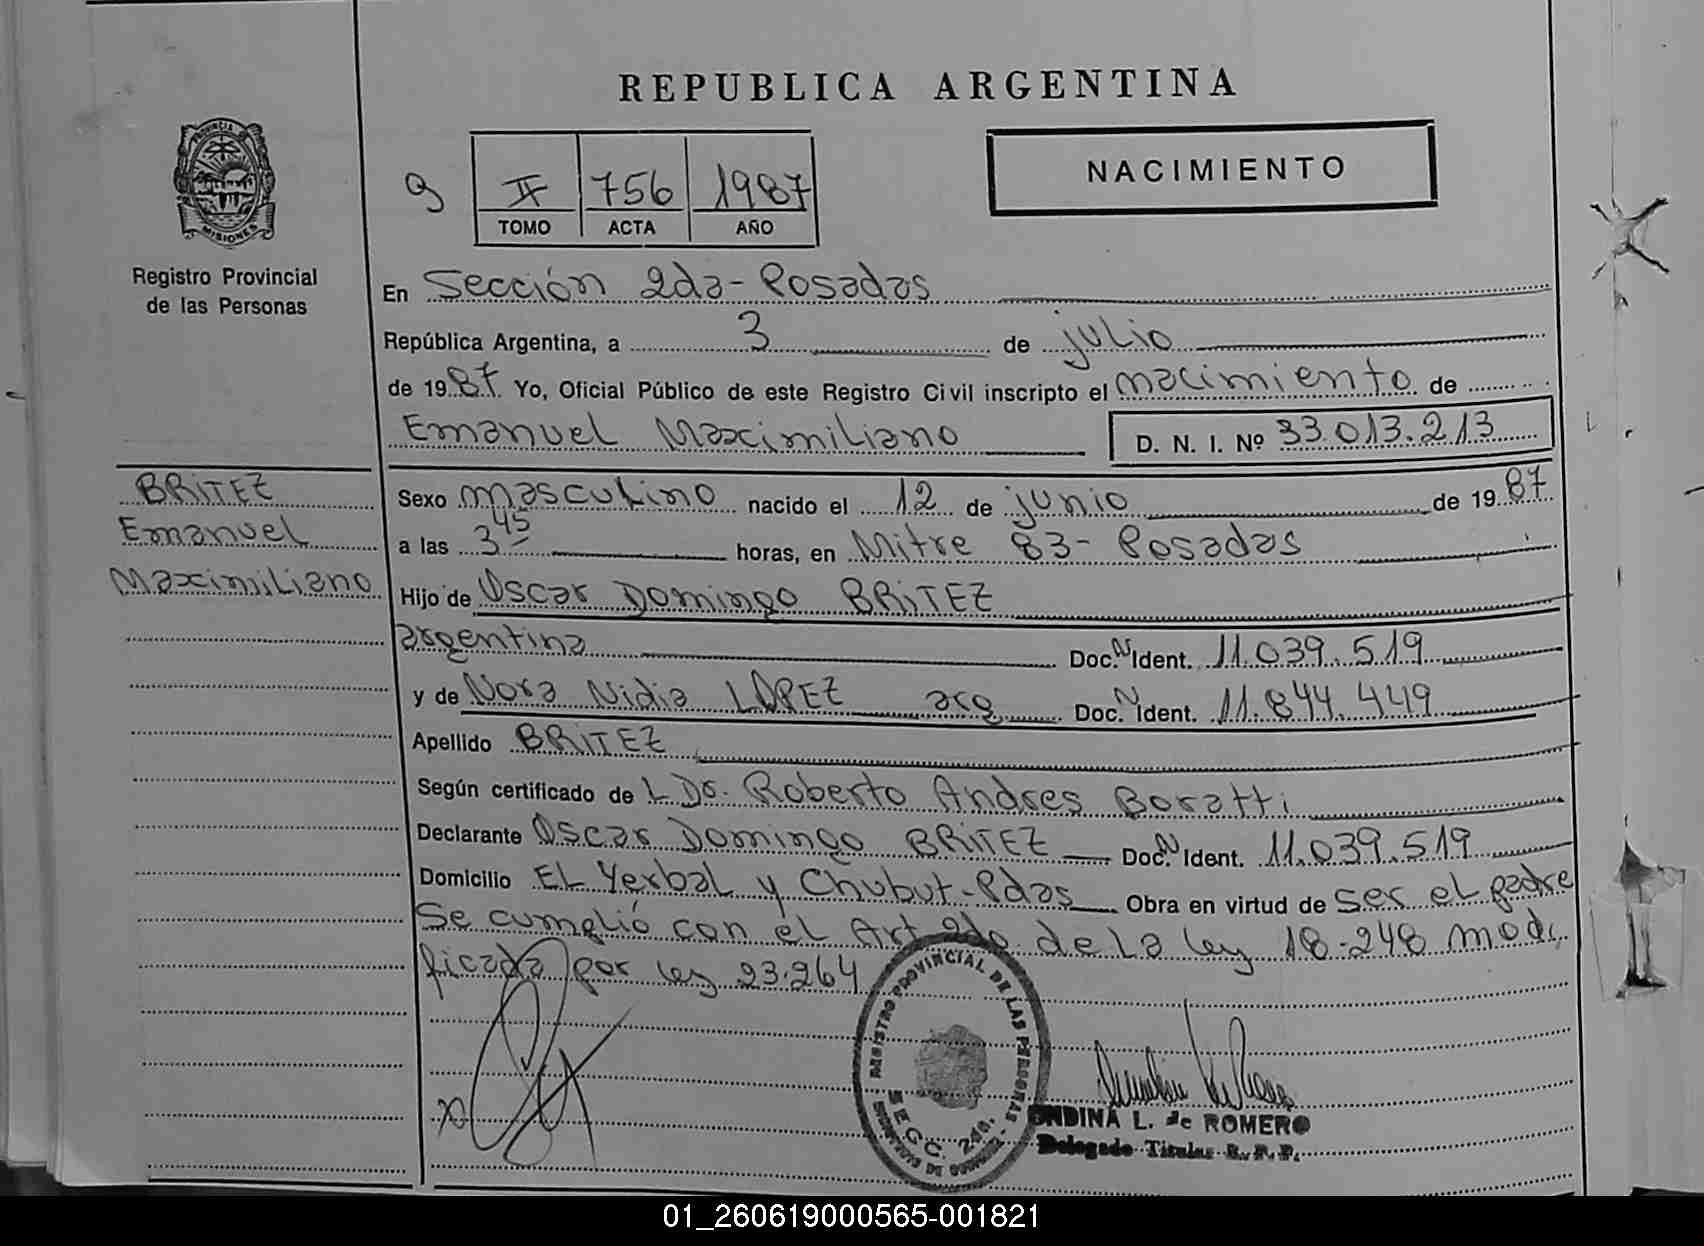 REPUBLICA ARGENTINA
PROVINCIA DE
MISIONES
Registro Provincial
de las Personas
9 II 756 1987
TOMO ACTA AÑO
NACIMIENTO
En Sección 2da - Posadas
República Argentina, a 3 de julio
de 1987 Yo, Oficial Público de este Registro Civil inscripto el nacimiento de
Emanuel Maximiliano D. N. I. Nº 33.013.213
BRITEZ
Emanuel
Maximiliano
Sexo masculino nacido el 12 de junio de 1987
a las 3 45 horas, en Mitre 83 - Posadas
Hijo de Oscar Domingo BRITEZ
argentina Doc. N Ident. 11.039.519
y de Nora Nidia LOPEZ arg Doc. N Ident. 11.844.449
Apellido BRITEZ
Según certificado de L Dr. Roberto Andres Boratti
Declarante Oscar Domingo BRITEZ Doc. N Ident. 11.039.519
Domicilio EL Yerbal y Chubut - Pdas Obra en virtud de ser el padre
Se cumplió con el Art 2do de la ley 18-248 modi
ficada por ley 23.264
REGISTRO PROVINCIAL DE LAS PERSONAS
SECC. 2da.
ONDINA L. de ROMERO
Delegado Titular R. P. P.
01_260619000565-001821